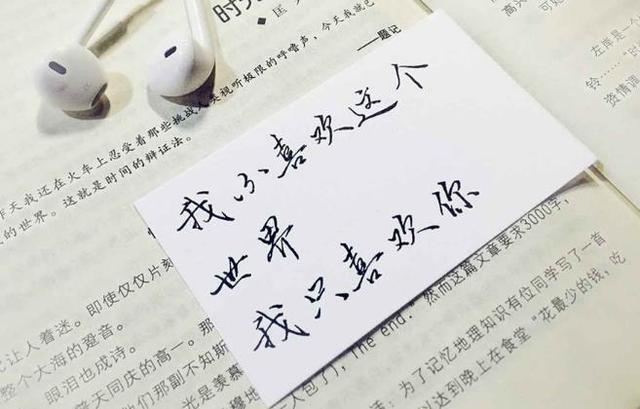 时光
匡
今天我就已
昨天我还在火车上忍受着那些挑战人类视听极限的呼噜声,
——题记
的世界。这就是时间的辩证法。
我不喜欢这个
世界
我只喜欢你
左岸是
铃……”
资情调
让人着迷。即使仅仅片刻
整个大海的跫音。
眼泪也成诗。
普天同庆的高一。那
他们那副不知斯
光是羡慕
穆地
一人包了),The end. 然而这篇文章要求3000字,
话:为了记忆地理知识有位同学写了一首
以达到晚上在食堂“花最少的钱,吃